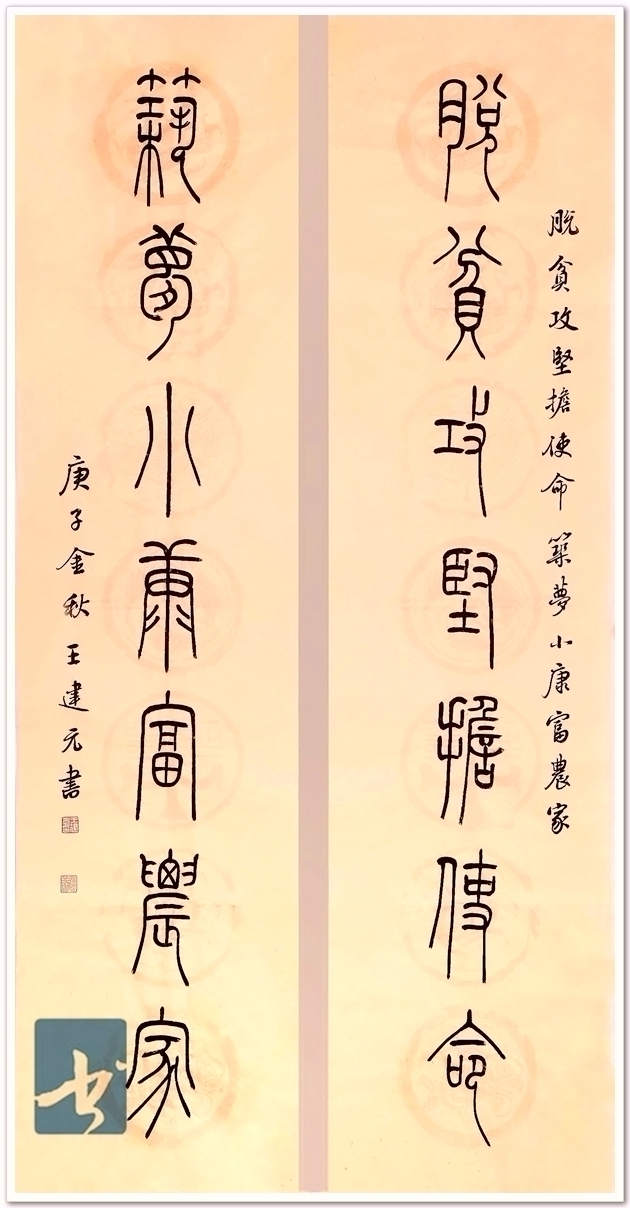 脱貧攻堅擔使命 築夢小康富農家
脱貧攻堅擔使命
築夢小康富農家
庚子金秋 王建元書
书